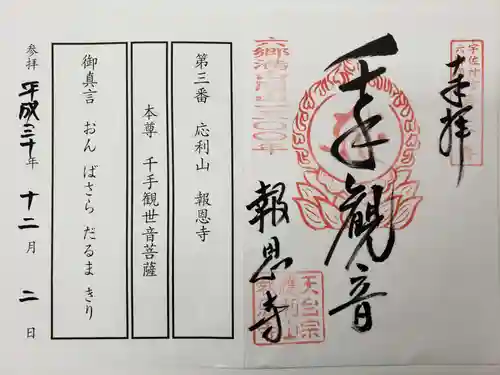 奉拝
千手観音
報恩寺
六郷満山開山一三〇〇年
天台宗
応利山
第三番 応利山 報恩寺
本尊 千手観世音菩薩
御真言 おん ばさら だるま きり
参拝 平成三十年 十二月 二日